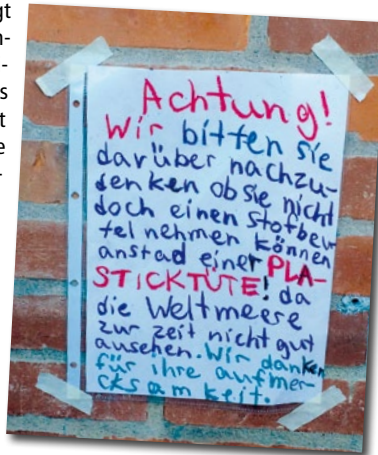 gt
n-
-
s
t
e
-
Achtung!
Wir bitten sie
darüber nachzu-
denken ob sie nicht
doch einen Stofbeu
tel nehmen können
anstad einer PLA-
STICKTÜTE! da
die Weltmeere
zur zeit nicht gut
aussehen. Wir danken
für ihre aufmer-
cksam keit.